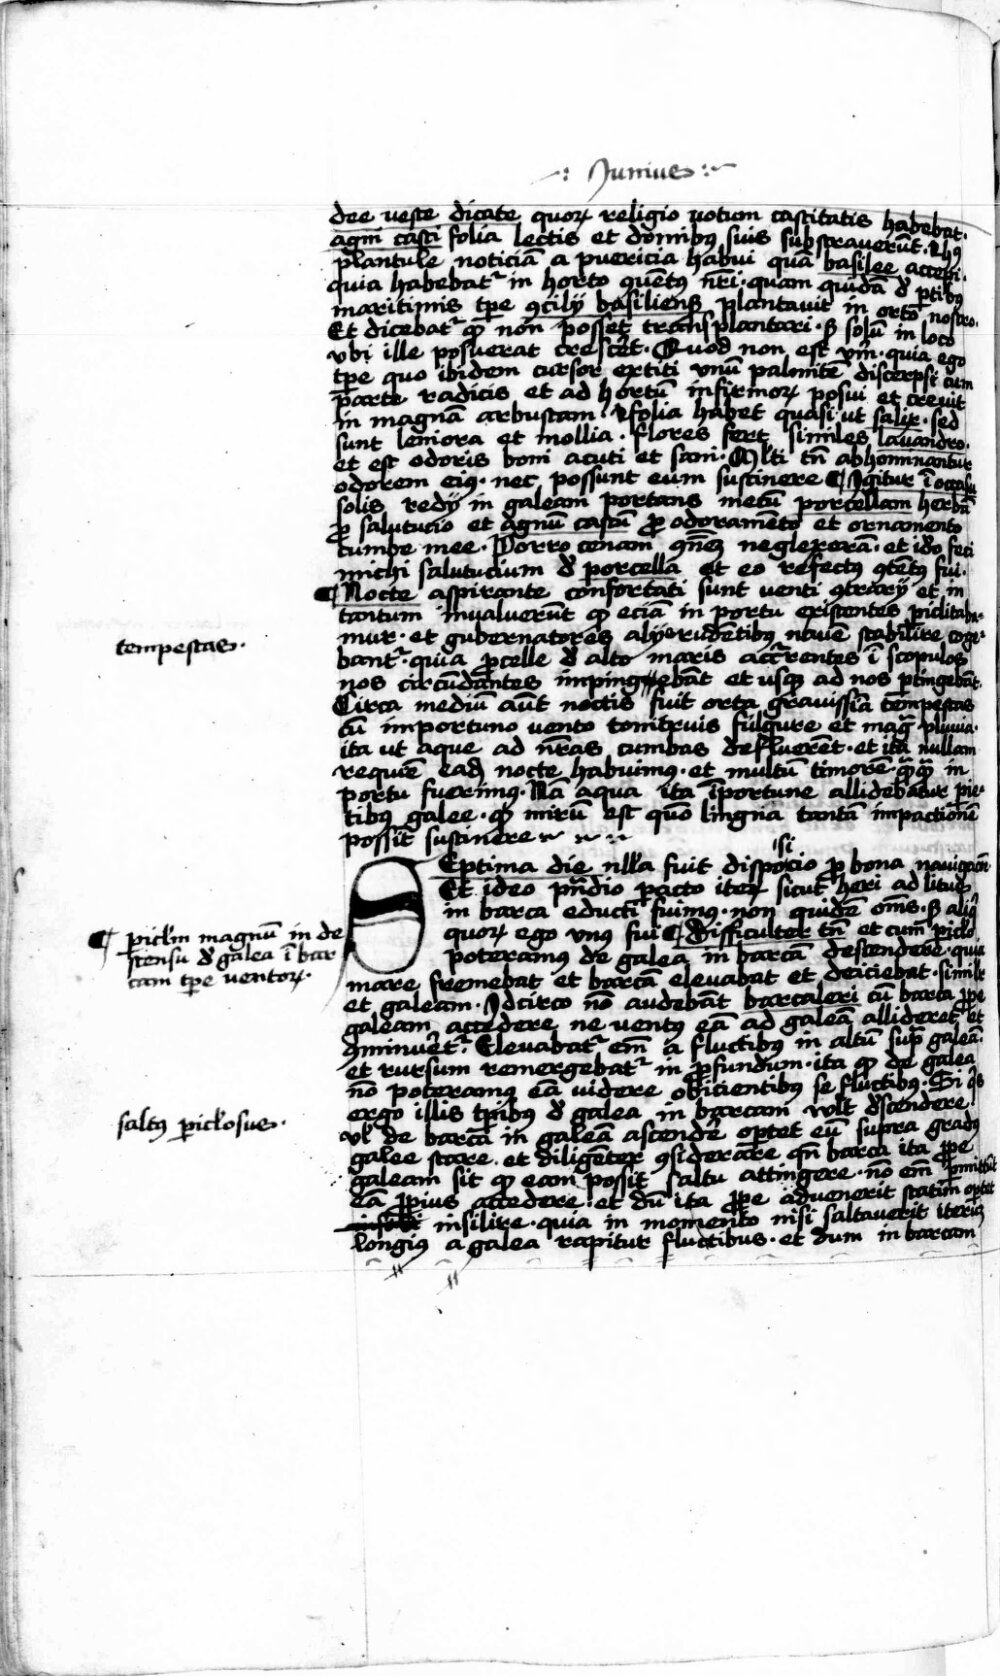 Junius
dee veste dicate quorꝝ religio votum castitatis habebat·
agni casti folia lectis et domibꝰ suis substraverūt· Hꝰ
plantule noticiā a puericia habui quā basilee accepi·
quia habebatᷣ in horto cōuētꝰ nr̄i· quam quidā đ ꝑtibꝰ
maritimis tp̄e ꝯcilij basiliensꝭ plantavit in orto nostro·
Et dicebatᷣ ꝙ non posset transplantari· sꝫ solū in loco
vbi ille posuerat crescēt· Quod non est vm̄· quia ego
tp̄e quo ibidem cursor extiti vnū palmitē discerpsi cum
parte radicis et ad hortū infirmoꝝ posui et crevit
in magnā arbustam· folia habet quasi ut salix· sed
sunt leniora et mollia· flores fert similes lavandro·
et est odoris boni acuti et sani· Ml̄ti tn̄ abhominantur
odorem eiꝰ· nec possunt eum sustinere ¶ Igitur ī occasu
solis redij in galeam portans mecū porcellam herbā
ꝓ salutucio et agnū castū ꝓ odoramēto et ornamento
cumbe mee· Porro cenam neglexerā· et iđo feci
michi salutucium đ porcella et eo refectꝰ ꝯtētꝰ fui·
¶ Nocte aspirante confortati sunt venti ꝯtrarij et in
tantum invaluerūt ꝙ eciā in portu existentes piclitaba-
mur· et gubernatores alijs rudētibꝰ navē stabilire coge-
bantᷣ· quia ꝓcelle đ alto maris accurrentes ī scopulos
nos circūdantes impingebāt et usqꝫ ad nos ꝑtingebāt·
Circa mediū aūt noctis fuit orta gravissīa tempestas
cū importuno vento tonitruis fulgure et magᷓ pluvia·
ita ut aque ad nr̄as cumbas defluerēt· et ita nullam
requiē eađ nocte habuimꝰ· et multū timorē· qᷓqᷓ in
portu fuerimꝰ· Nā aqua ita īportune allidebatur parie-
tibus galee· ꝙ mirū est quō lingnā tantā impactionē
possit sustinere
si
Septima die nll̄a fuit dispocio ꝓ bona navigacōe
Et ideo prādio ꝑacto iteꝝ sicut heri ad litus
in barca educti fuimꝰ· non quidē om̄s· sꝫ aliqͥ
quoꝝ ego vnꝰ fui ¶ Difficulter tn̄ et cum piclo
poteramꝰ de galea in barcā descendere· quia
mare fremebat et barcā elevabat et deiciebat· similr
et galeam· Idcirco nō audebāt barcaleri cū barca ꝓpe
galeam accedere ne ventꝰ eā ad galeā allideret et
ꝯminuēt· Elevabatᷣ em̄ a fluctibꝰ in altū supᷓ galeā·
et rursum remergebatᷣ in ꝓfundum· ita ꝙ de galea
nō poteramꝰ eā videre obicientibꝰ se fluctibꝰ· Si qͥs
ergo illis tp̄ibꝰ đ galea in barcam volt đscendere
vl̄ de barcā in galeā ascendē oportet eū supra gradꝰ
galee stare et diligēter ꝯsiderare qn̄ barca ita ꝓpe
galeam sit ꝙ eam possit saltu attingere· nō em̄ ꝑmittūt
eā ꝓpius accedere· et dū ita ꝓpe advenerit statim oportet
insilire· quia in momento nisi saltaverit iterū
longiꝰ a galea rapitur fluctibus· et dum in barcam
tempestas·
¶ piclm magnū in de
scensu đ galea ī bar
cam tp̄e ventoꝝ·
saltꝰ piclosus·